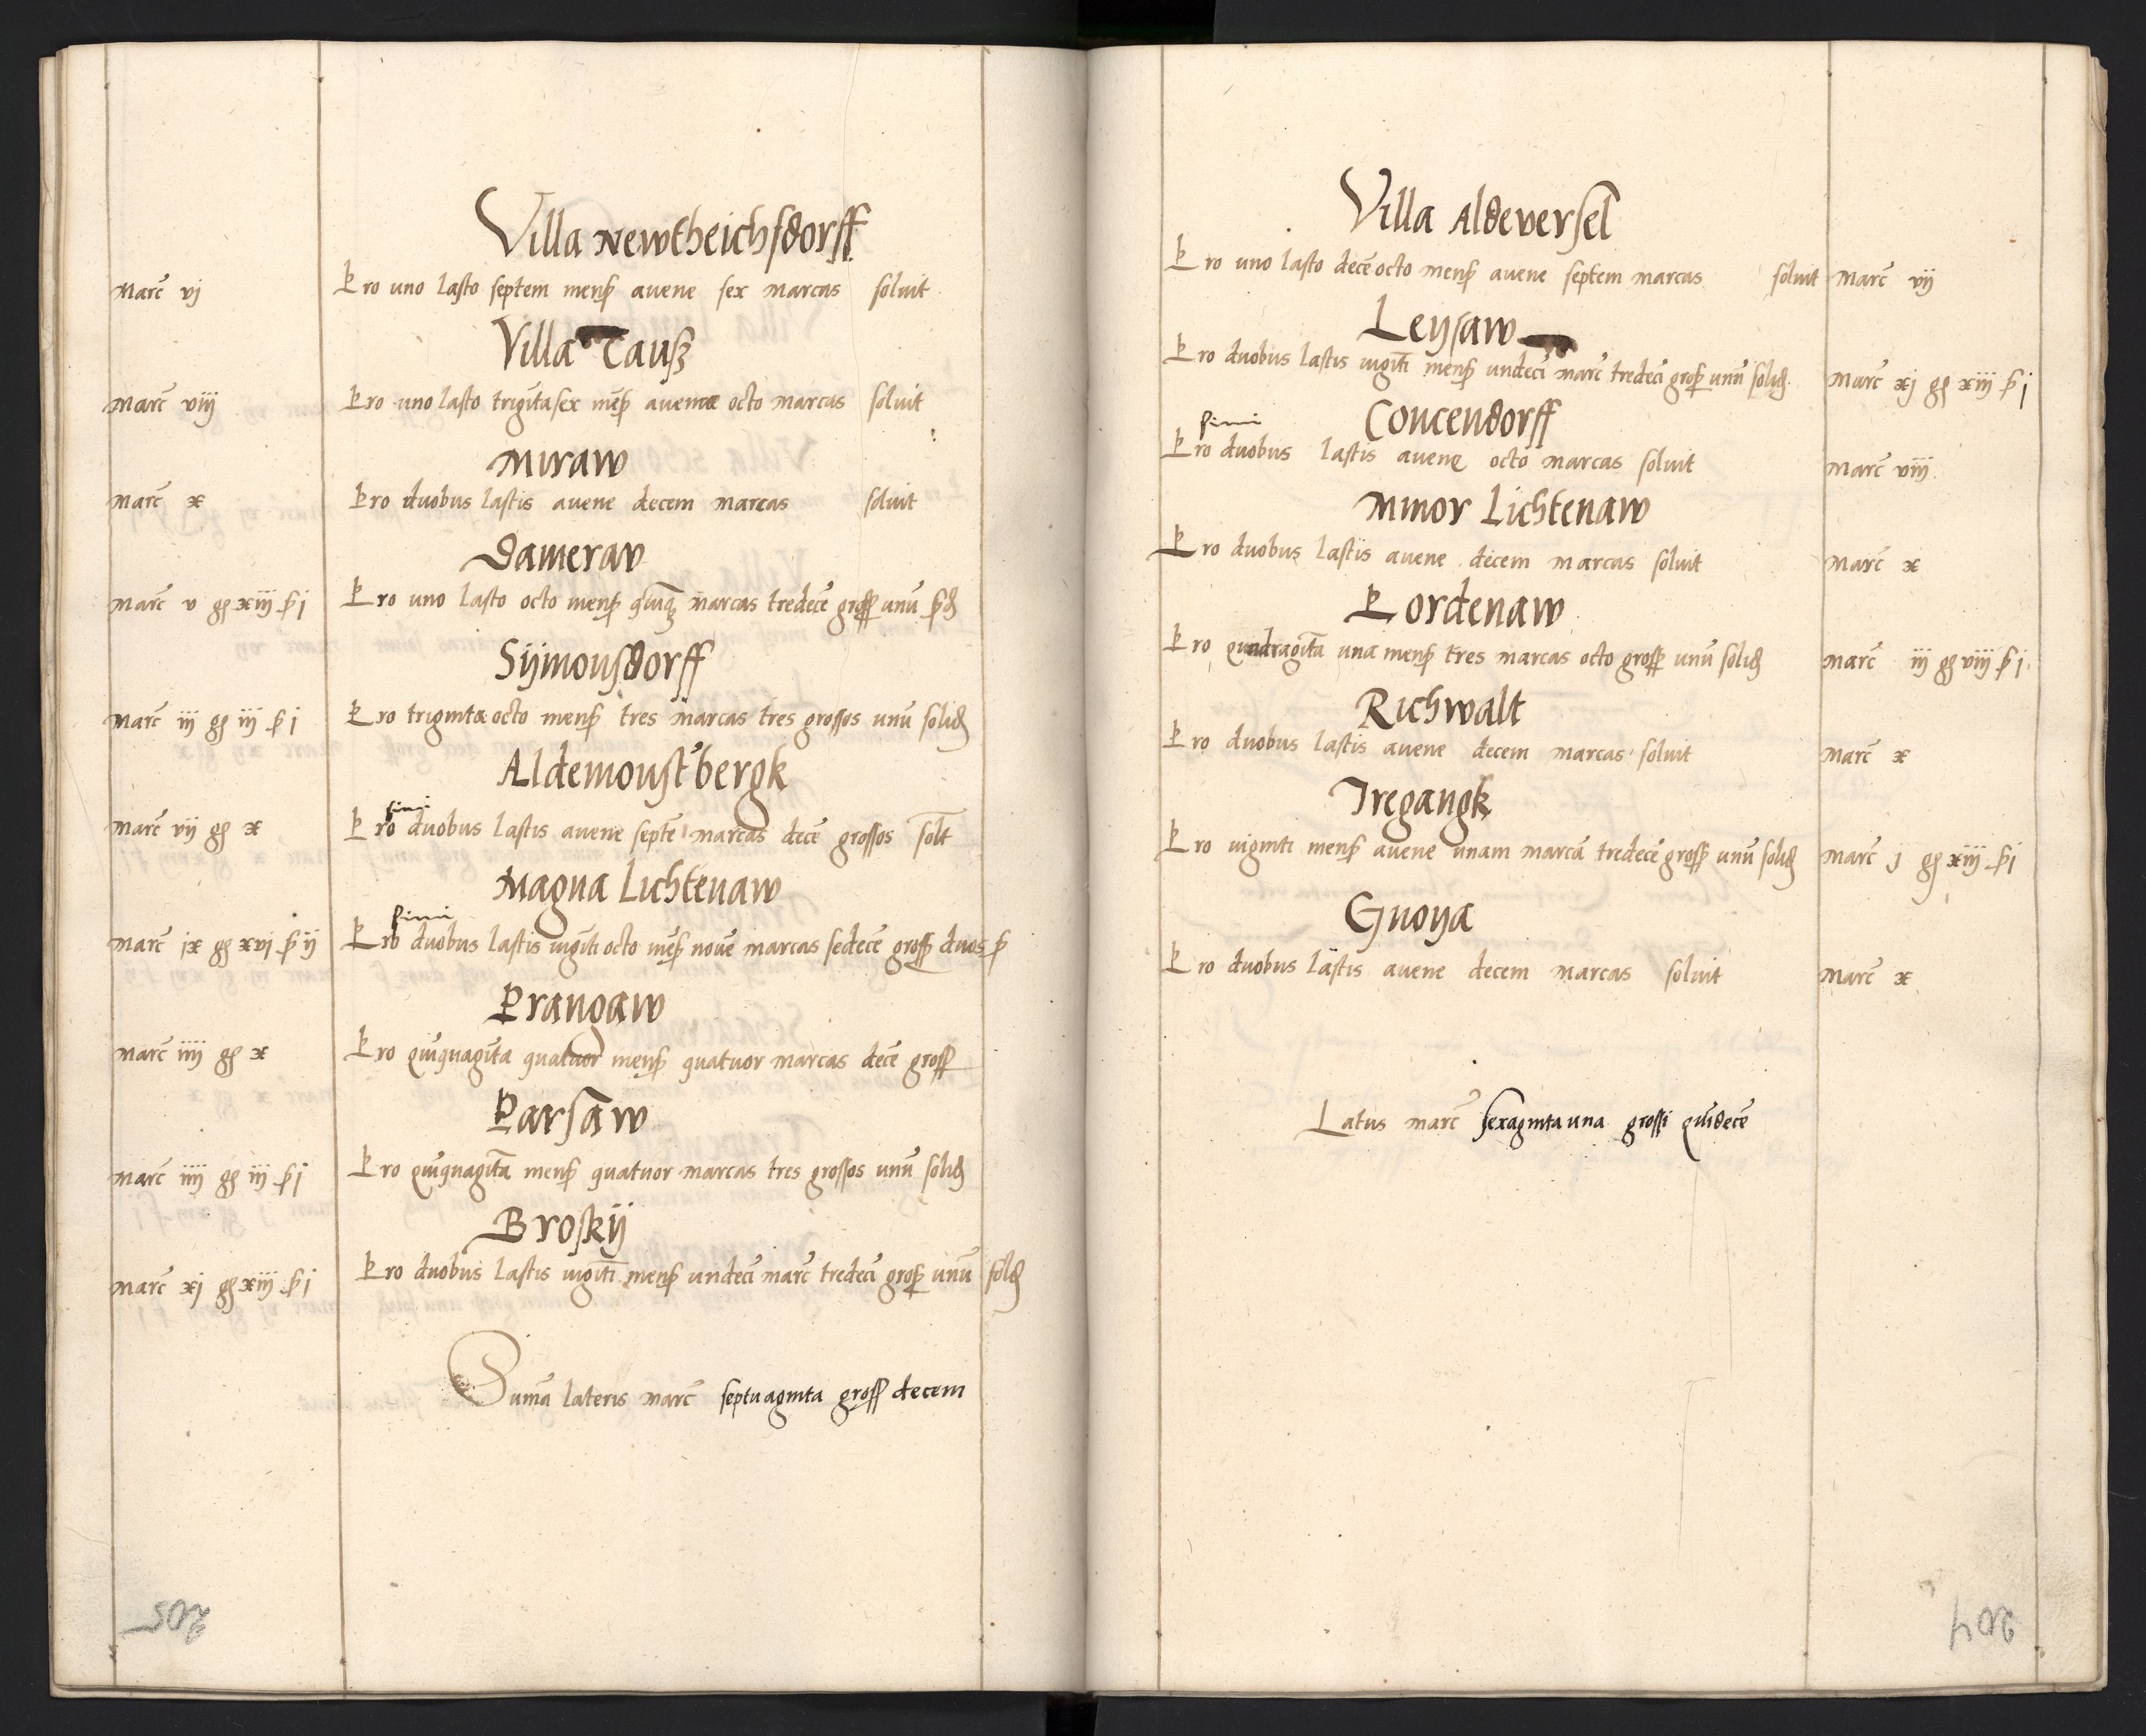 Villa Newtheichsdorff
Marc vj Pro uno lasto septem mens avene sex marcas solvit
Villa Tausz
Marc viij Pro uno lasto trigitasex mes avenae octo marcas solvit
Miraw
Marc x Pro duobus lastis avene decem marcas solvit
Damerav
Marc v g xiij s j Pro uno lasto octo mens quiqz marcas tredece gross unu s
Sijmonsdorff
Marc iij g iij s j Pro trigintaocto mens tres marcas tres grossos unu solid
Aldemonst'bergk
simi
Marc vij g x Pro duobus lastis avene septe marcas dece grossos solt
Magna Lichtenaw
simi
Marc ix g xvj s ij Pro duobus lastis vigiti octo mes nove marcas sedece gross duos s
Prangaw
Marc iiij g x Pro quiquagita quatuor mens quatuor marcas dece gross
Parsaw
Marc iiij g iij s j Pro quiquagita mens quatuor marcas tres grossos unu solid
Broskij
Marc xj g xiij s j Pro duobus lastis vigiti mens undeci marc tredeci gros unu solid
Suma lateris marc septuaginta gross decem
205
Villa Aldeversel
Pro uno lasto deceocto mens avene septem marcas solvit Marc vij
Leijsaw
Pro duobus lastis vigiti mens undeci marc tredeci gros unu solid Marc xj g xiij s j
Concendorff
simi
Pro duobus lastis avene octo marcas solvit Marc viij
Minor Lichtenaw
Pro duobus lastis avene decem marcas solvit Marc x
Pordenaw
Pro quadragita una mens tres marcas octo gross unu solid Marc iij g viij s j
Richwalt
Pro duobus lastis avene decem marcas solvit Marc x
Tregangk
Pro viginti mens avene unam marca tredece gross unu solid Marc j g xiij s j
Gnoija
Pro duobus lastis avene decem marcas solvit Marc x
Latus marc sexaginta una grossi quidece
204